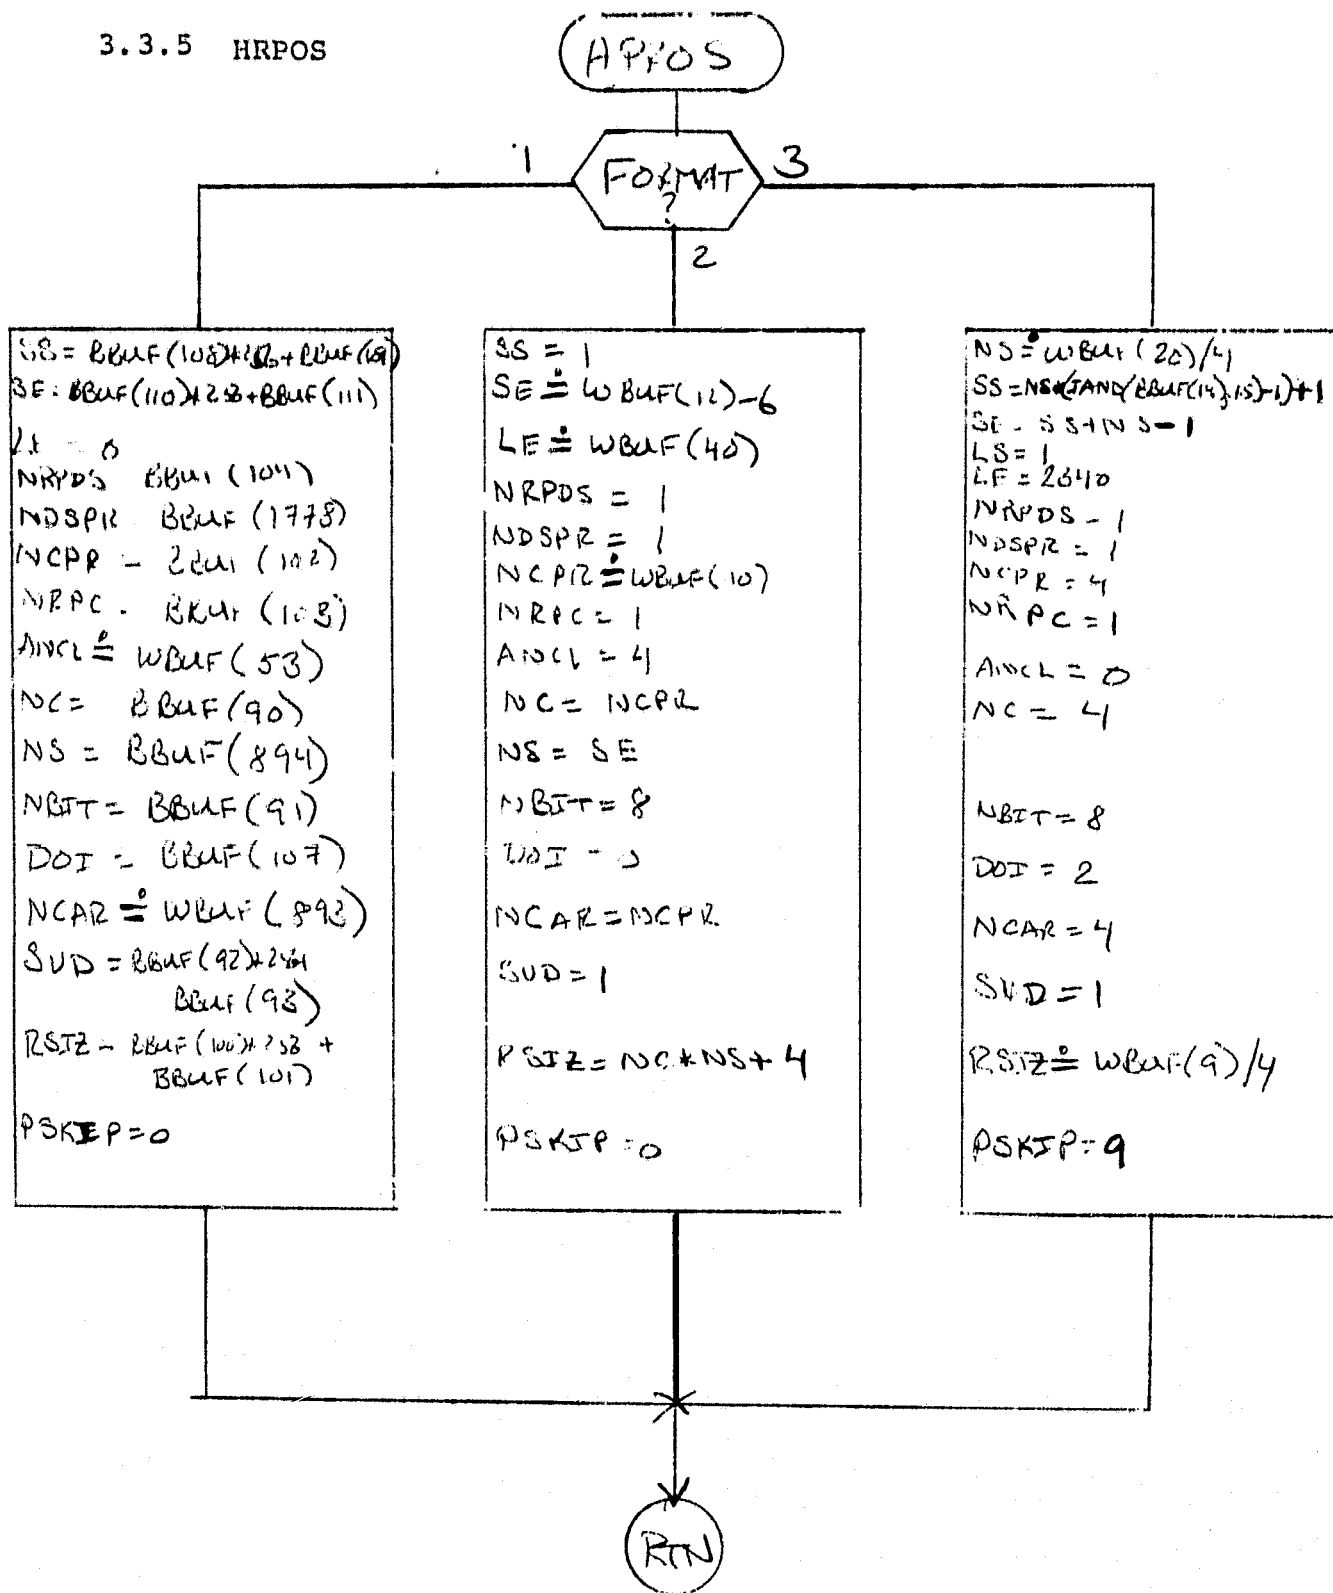 3.3.5 HRPOS
FORMAT
?
1
3
2
SE = BBUF(110)*256+BBUF(111)
NRPDS BBUF (104)
NDSPR BBUF (1778)
NCPR = BBUF (102)
NRPC = BBUF (103)
ANCL ≐ WBUF (53)
NC = BBUF(90)
NS = BBUF(894)
NBIT = BBUF(91)
DOI = BBUF(107)
NCAR ≐ WBUF(893)
SVD = BBUF(92)*256+
BBUF(93)
RSIZ = BBUF(100)*256 +
BBUF(101)
PSKIP=0
SS = 1
SE ≐ WBUF(12)-6
LE ≐ WBUF(40)
NRPDS = 1
NDSPR = 1
NCPR ≐ WBUF(10)
NRPC = 1
ANCL = 4
NC = NCPR
NS = SE
NBIT = 8
DOI = 0
NCAR = NCPR
SVD = 1
RSIZ = NC*NS+4
PSKIP = 0
NS ≐ WBUF(20)/4
SS=NS*(IAND(BBUF(14),15)-1)+1
SE = SS+NS-1
LS = 1
LE = 2340
NRPDS = 1
NDSPR = 1
NCPR = 4
NRPC = 1
ANCL = 0
NC = 4
NBIT = 8
DOI = 2
NCAR = 4
SVD = 1
RSIZ ≐ WBUF(9)/4
PSKIP = 9
RTN